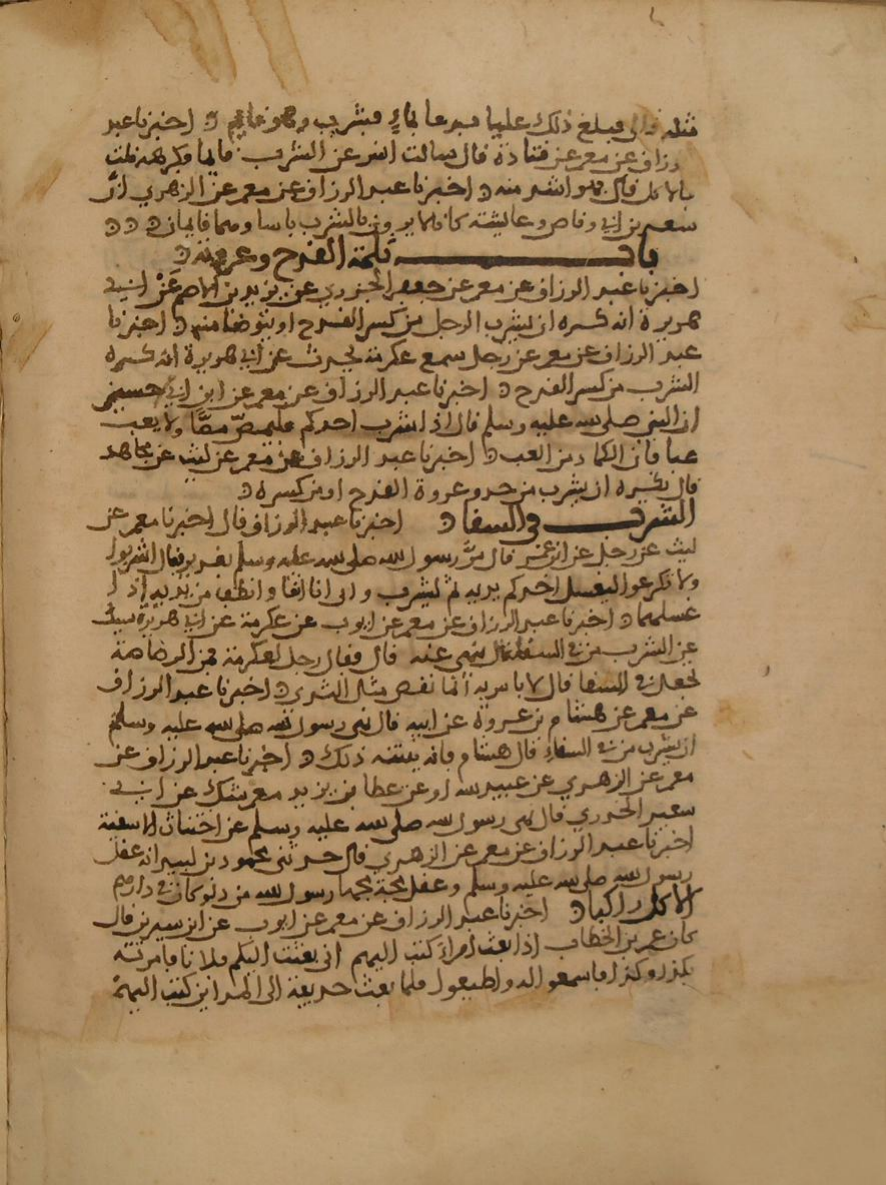 مثله قال فبلغ ذلك عليا فدعا بماء فشرب وهو قايم ه اخبرنا عبد
الرزاق عن معمر عن قتادة قال سالت انس عن الشرب قايما فكرهه قلت
فالاكل قال هو اشر منه ه اخبرنا عبد الرزاق عن معمر عن الزهري ان
سعد بن ابي وقاص وعايشة كانا لا يرون بالشرب باسا وهما قايمان ه ه ه
باب ثلمة القدح وعروته ه
اخبرنا عبد الرزاق عن معمر عن جعفر الجزري عن يزيد بن الاصم عن ابي
هريرة انه كره ان يشرب الرجل من كسر القدح او يتوضا منه ه اخبرنا
عبد الرزاق عن معمر عن رجل سمع عكرمة يحدث عن ابي هريرة انه كره
الشرب من كسر القدح ه اخبرنا عبد الرزاق عن معمر عن ابن ابي حسين
ان النبي صلى الله عليه وسلم قال اذا شرب احدكم فليمص مصا ولا يعب
عبا فان الكباد من العب ه اخبرنا عبد الرزاق عن معمر عن ليث عن مجاهد
قال يكره ان يشرب من حذو عروة القدح او من كسره ه
الشرب في السقا ه اخبرنا عبد الرزاق قال اخبرنا معمر عن
ليث عن رجل عن ابن عمر قال مر رسول الله صلى الله عليه وسلم بغدير فقال اشربوا
ولا تكرعوا ليغسل احدكم يديه ثم ليشرب واي انا انقا وانظف من يديه اذا
غسلهما ه اخبرنا عبد الرزاق عن معمر عن ايوب عن عكرمة عن ابي هريرة سيل
عن الشرب من في السقا قال ينهى عنه قال فقال رجل لعكرمة فمن الرصاصة
تجعل في السقا قال لا باس به انما تمص مثل الثدي ه اخبرنا عبد الرزاق
عن معمر عن هشام بن عروة عن ابيه قال نهى رسول الله صلى الله عليه وسلم
ان يشرب من في السقاء قال هشام فانه ينتنه ذلك ه اخبرنا عبد الرزاق عن
معمر عن الزهري عن عبيد الله او عن عطا بن يزيد معمر يشك عن ابي
سعيد الخدري قال نهى رسول الله صلى الله عليه وسلم عن اختناث الاسقية
اخبرنا عبد الرزاق عن معمر عن الزهري قال حدثني محمود بن لبيد انه عقل
رسول الله صلى الله عليه وسلم وعقل مجة مجها رسول الله من دلو كان في دارهم
الاكل راكبا ه اخبرنا عبد الرزاق عن معمر عن ايوب عن ابن سيرين قال
كان عمر بن الخطاب اذا بعث امراء كتب اليهم اني بعثت اليكم فلانا فامرته
بكذا وكذا فاسمعوا له واطيعوا فلما بعث حذيفة الى المداين كتب اليهم